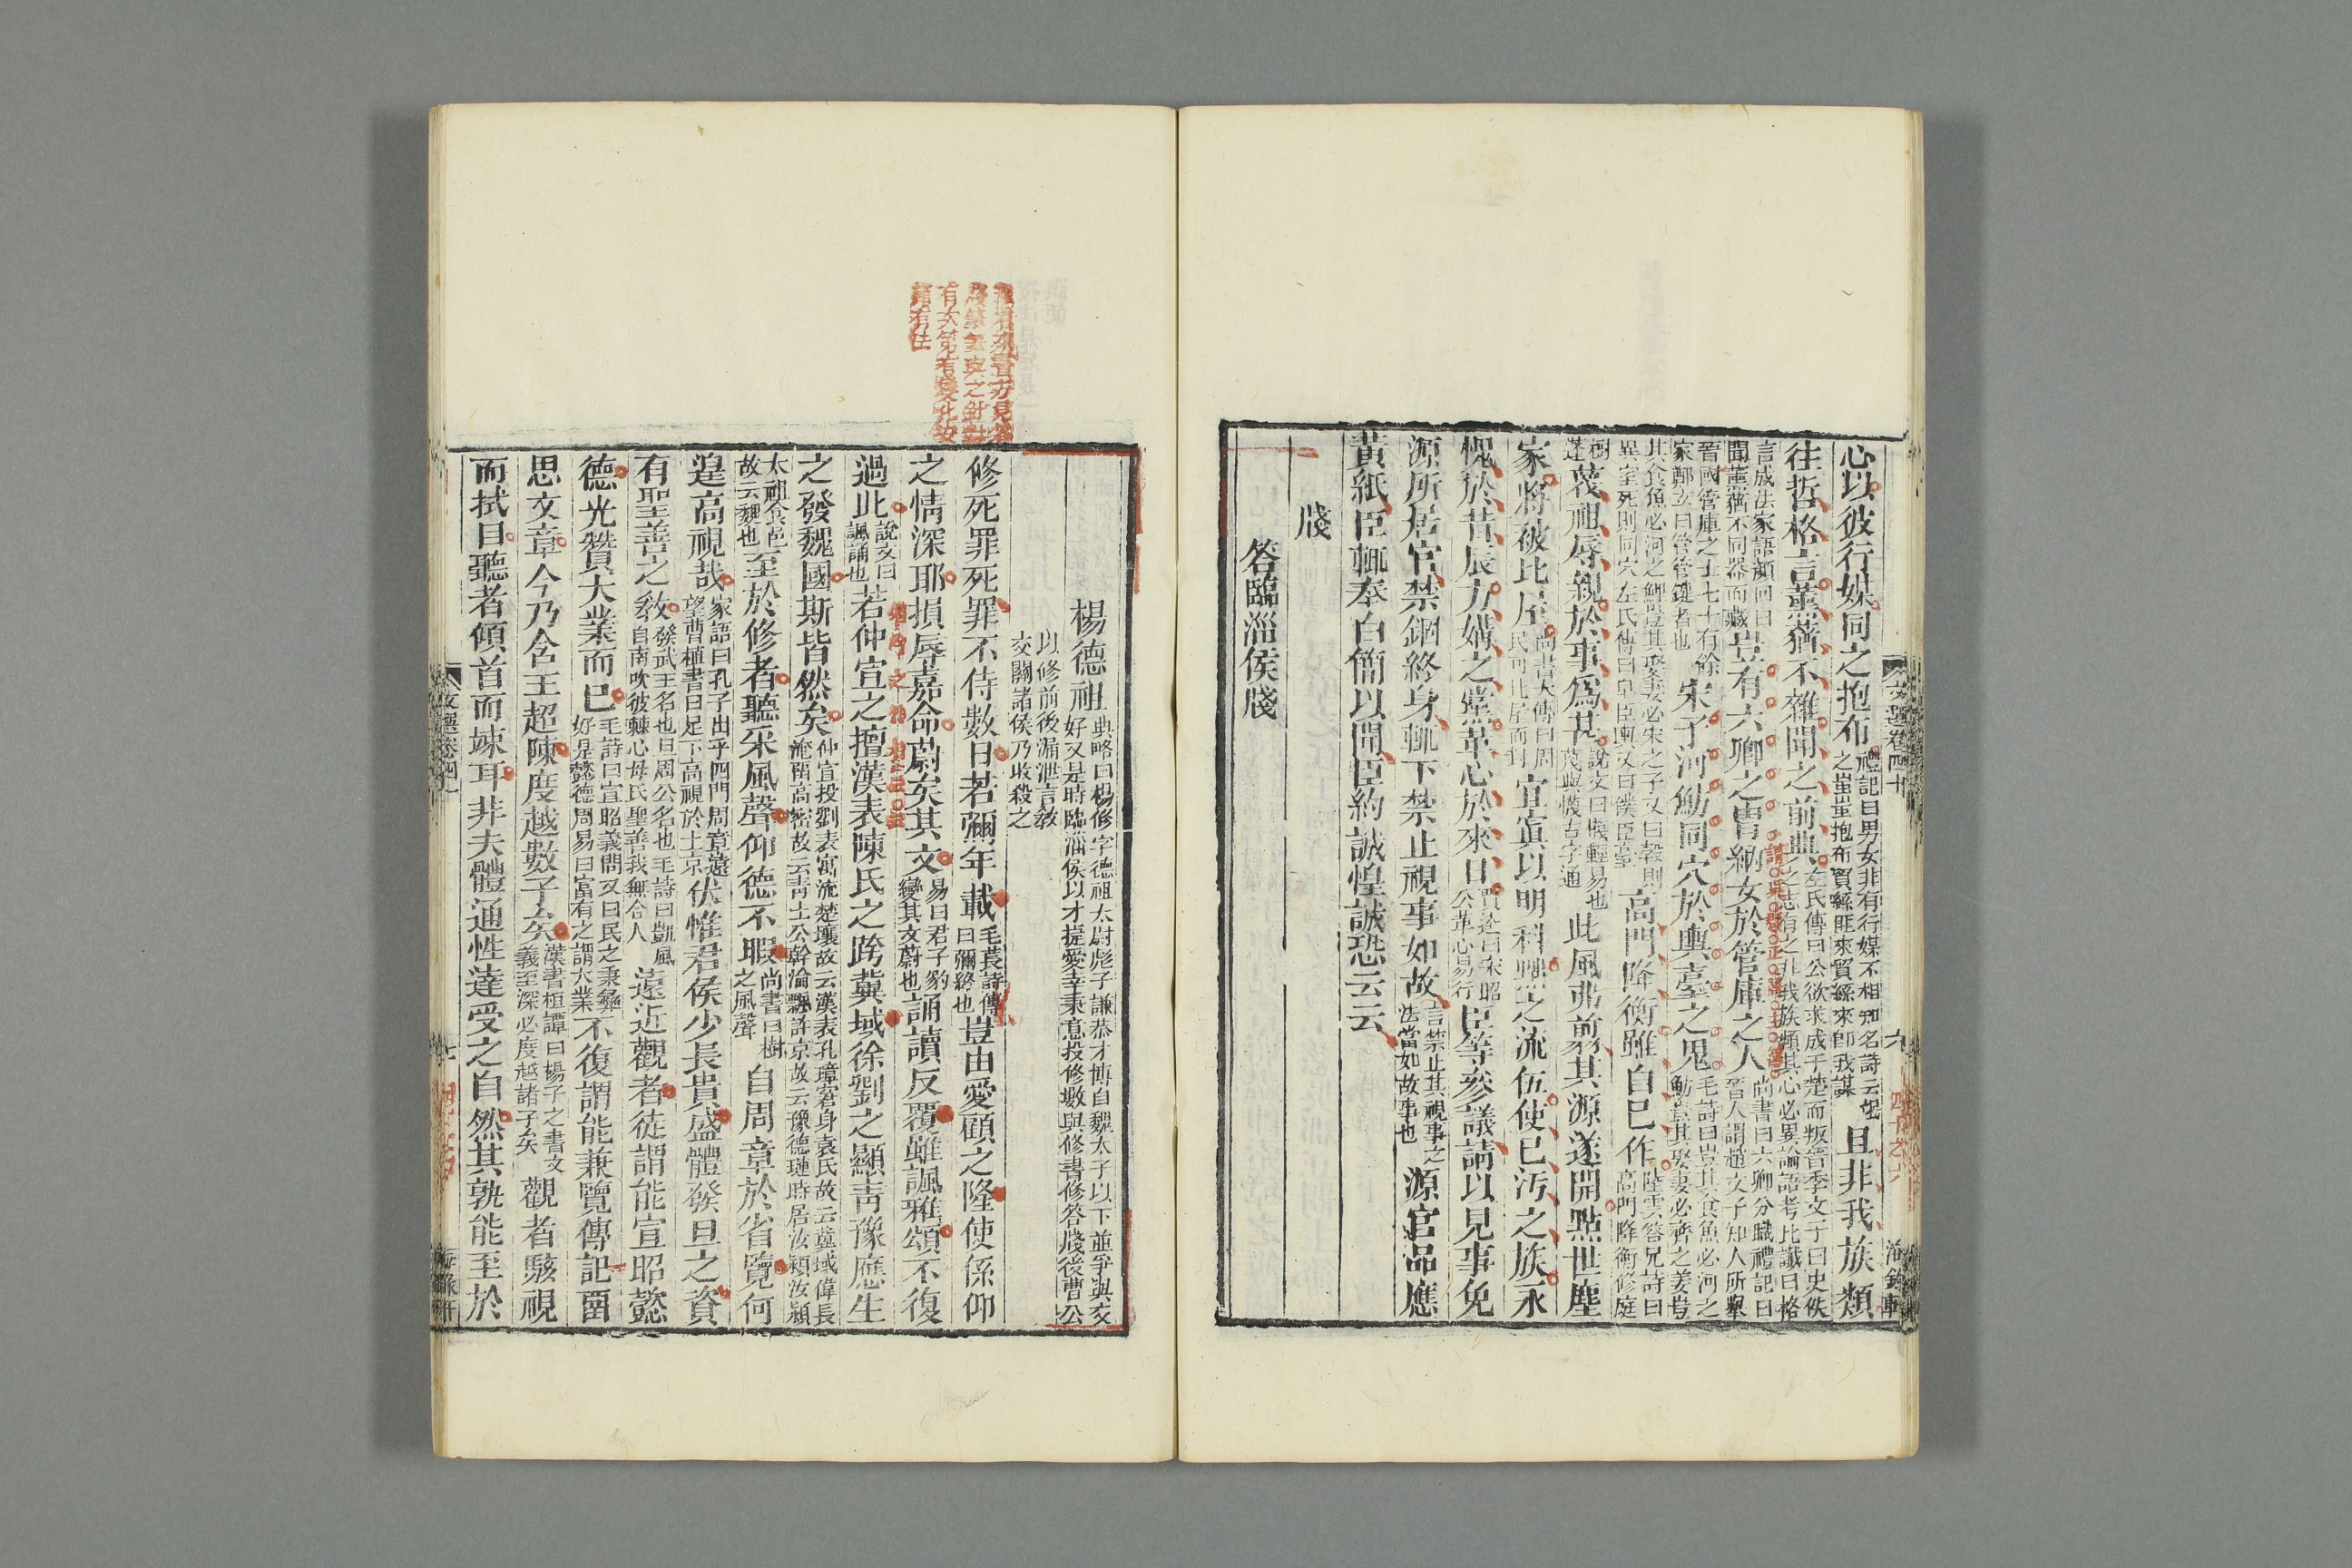 心以彼行媒同之抱布禮記曰男女非有行媒不相知名詩云氓之蚩蚩抱布貿絲匪來貿絲來即我謀且非我族類
往哲格言薰蕕不雜聞之前典左氏傳曰公欲求成于楚而叛晉季文子曰史佚之志有之非我族類其心必異論語考比讖曰格
言成法家語顏回曰聞薰蕕不同器而藏豈有六卿之胄納女於管庫之人尚書曰六卿分職禮記曰晉人謂趙文子知人所舉
晉國管庫之士七十有餘家鄭玄曰管管鍵者也宋子河魴同穴於輿臺之鬼毛詩曰豈其食魚必河之魴豈其娶妻必齊之姜豈
其食魚必河之鯉豈其娶妻必宋之子又曰穀則異室死則同穴左氏傳曰皁臣輿又曰僕臣臺高門降衡雖自已作陸雲答兄詩曰高門降衡修庭
樹蓬蔑祖辱親於事為甚說文曰懱輕易也蔑與懱古字通此風弗翦其源遂開點世塵
家將被比屋尚書大傳曰周民可比屋而封宜寘以明科黜之流伍使已汚之族永
愧於昔辰方媾之黨革心於來日賈逵曰宋昭公革心易行臣等參議請以見事免
源所居官禁錮終身輒下禁止視事如故言禁止其視事之法當如故事也源官品應
黃紙臣輒奉白簡以聞臣約誠惶誠恐云云
牋
答臨淄侯牋
文選卷四十
六
海錄軒
楊德祖典略曰楊修字德祖太尉彪子謙恭才博自魏太子以下並爭與交好又是時臨淄侯以才捷愛幸秉意投修數與修書修答牋後曹公
以修前後漏泄言敎交關諸侯乃收殺之
修死罪死罪不侍數日若彌年載毛萇詩傳曰彌終也豈由愛顧之隆使係仰
之情深耶損辱嘉命蔚矣其文易曰君子豹變其文蔚也誦讀反覆雖諷雅頌不復
過此說文曰諷誦也若仲宣之擅漢表陳氏之跨冀域徐劉之顯青豫應生
之發魏國斯皆然矣仲宣投劉表寓流楚壤故云漢表孔璋窘身袁氏故云冀域偉長淹留高密故云青土公幹淪飄許京故云豫德璉時居汝潁汝潁
太祖食邑故云魏也至於修者聽采風聲仰德不暇尚書曰樹之風聲自周章於省覽何
遑高視哉家語曰孔子出乎四門周章遠望曹植書曰足下高視於上京伏惟君侯少長貴盛體發旦之資
有聖善之敎發武王名也旦周公名也毛詩曰凱風自南吹彼棘心母氏聖善我無令人遠近觀者徒謂能宣昭懿
德光贊大業而已毛詩曰宣昭義問又曰民之秉彝好是懿德周易曰富有之謂大業不復謂能兼覽傳記畱
思文章今乃含王超陳度越數子矣漢書桓譚曰楊子之書文義至深必度越諸子矣觀者駭視
而拭目聽者傾首而竦耳非夫體通性達受之自然其孰能至於
文選卷四十